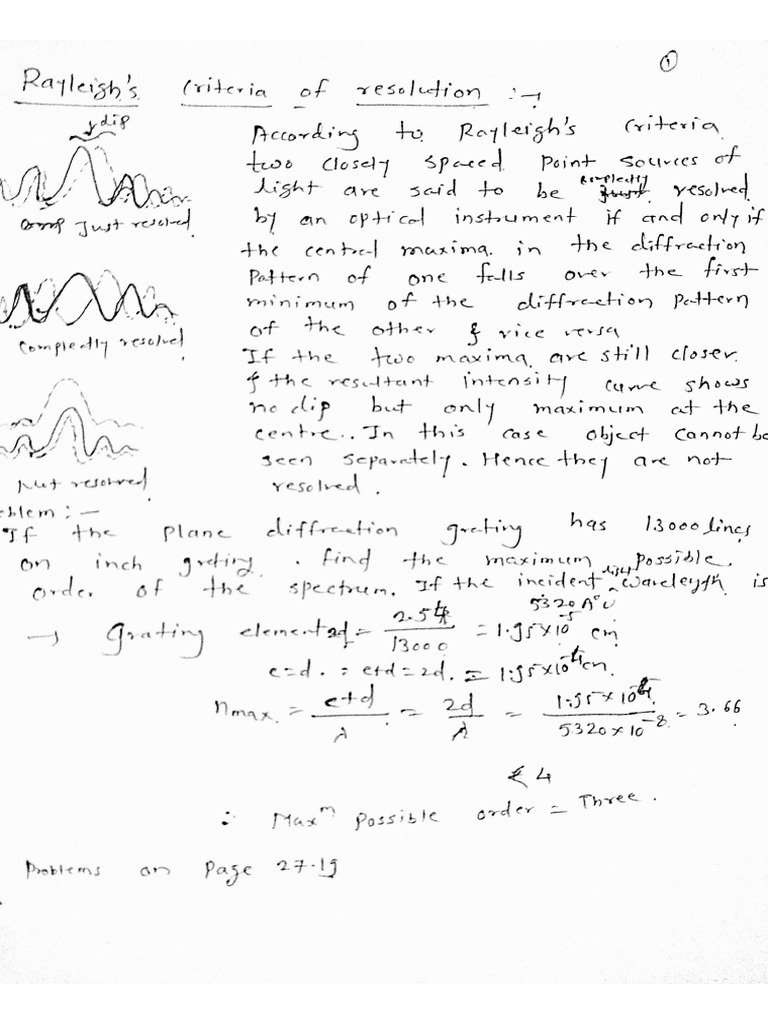 1
Rayleigh's Criteria of resolution :→
dip
According to Rayleigh's Criteria
two closely spaced point sources of
light are said to be completly resolved
Just resolved
by an optical instrument if and only if
the central maxima in the diffraction
pattern of one falls over the first
minimum of the diffraction pattern
of the other & vice versa
Complectly resolved
If the two maxima are still closer
& the resultant intensity curve shows
no dip but only maximum at the
centre.. In this case object cannot be
seen separately. Hence they are not
Not resolved
resolved.
oblem :—
If the plane diffraction grating has 13000 lines
on inch grting. find the maximum possible
order of the spectrum. If the incident light wavelength is
5320 A°U
→ Grating element = 2.54 / 13000 = 1.95×10⁻⁵ cm
e=d. ∴ e+d=2d. = 1.95×10⁻⁴cm.
nmax. = e+d / λ = 2d / λ = 1.95×10⁻⁴ / 5320×10⁻⁸ = 3.66
< 4
∴ Maxᵐ possible order = Three.
Problems on page 27.19